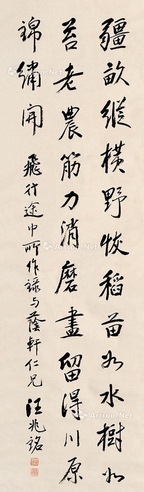 疆畝縱橫野恢稻苗如水樹如
苔老農筋力消磨盡留得川原
錦繡開 飛行途中所作錄与蔭軒仁兄 汪兆銘